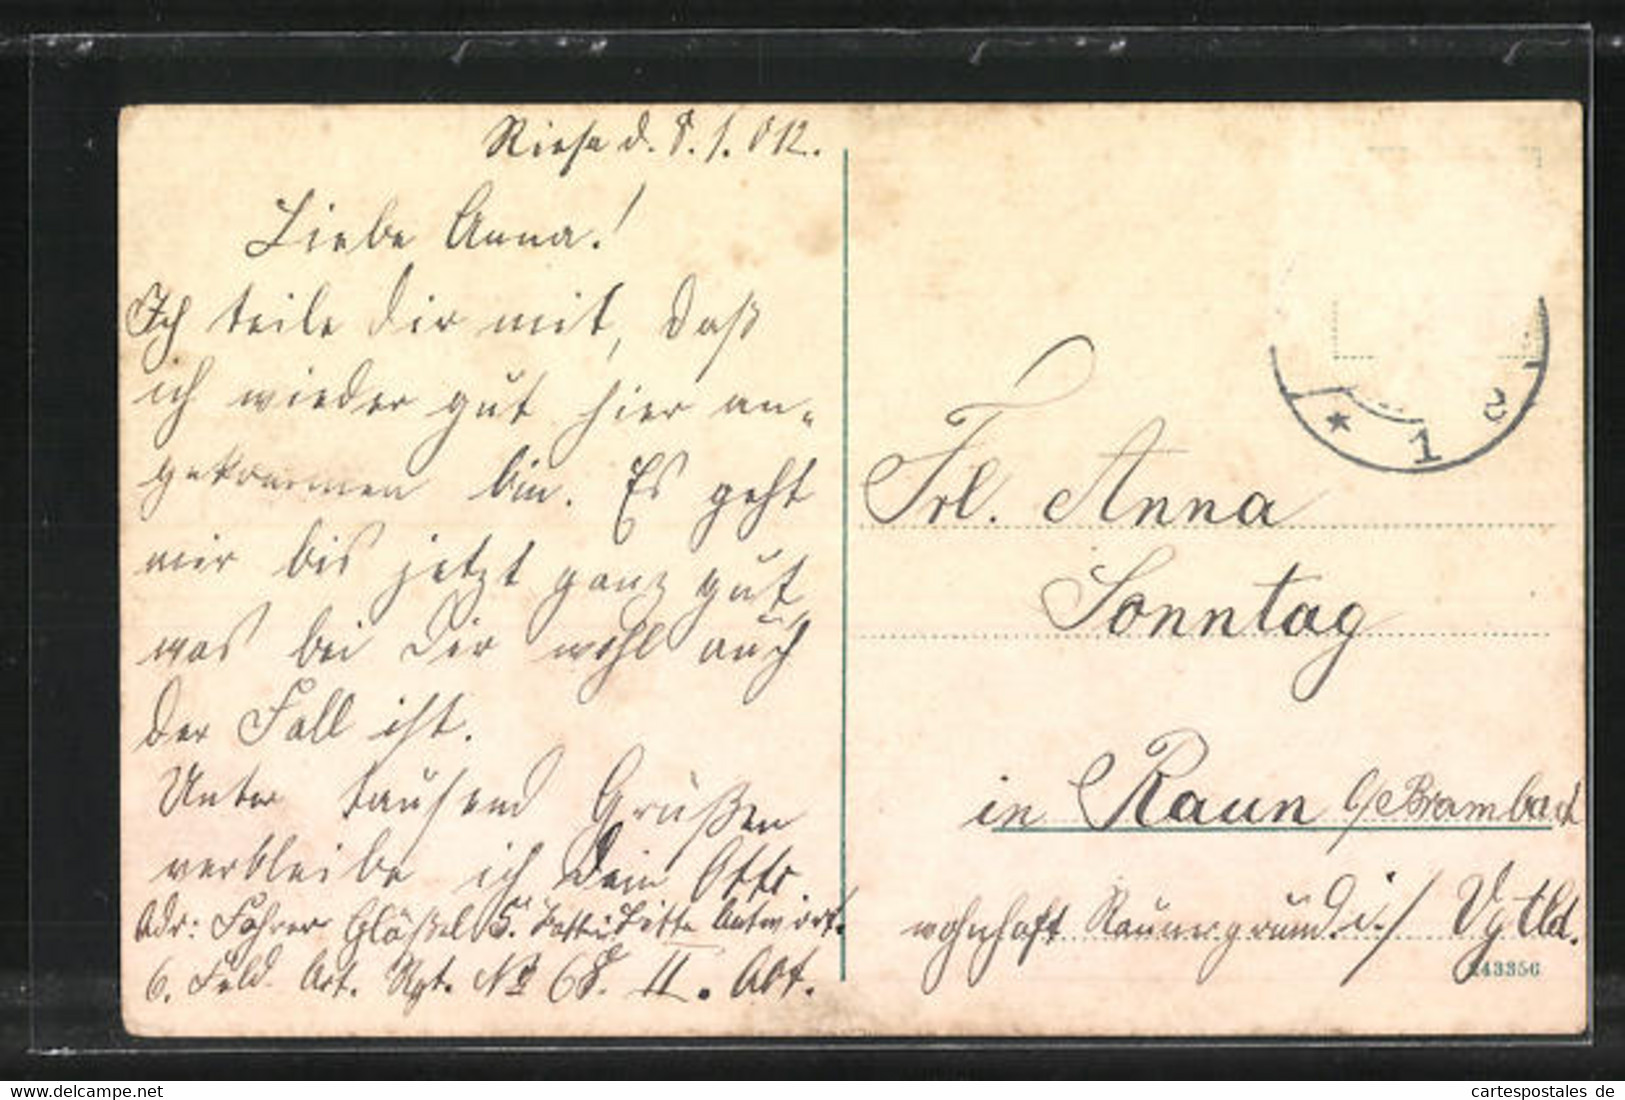 Riesa d. 8.1.912.
Liebe Anna!
Ich teile Dir mit, daß
ich wieder gut hier an-
gekommen bin. Es geht
mir bis jetzt ganz gut,
was bei Dir wohl auch
der Fall ist.
Unter tausend Grüßen
verbleibe ich Dein Otto.
Adr: Fahrer Gläßel 5. Batt. Bitte Antwort.
6. Feld. Art. Rgt. No 68. II. Abt.
* 1 2
Frl. Anna
Sonntag
in Raun b/Brambach
wohnhaft Raunergrund. i./ Vgtld.
243356
cartespostales de
My ID Stamp